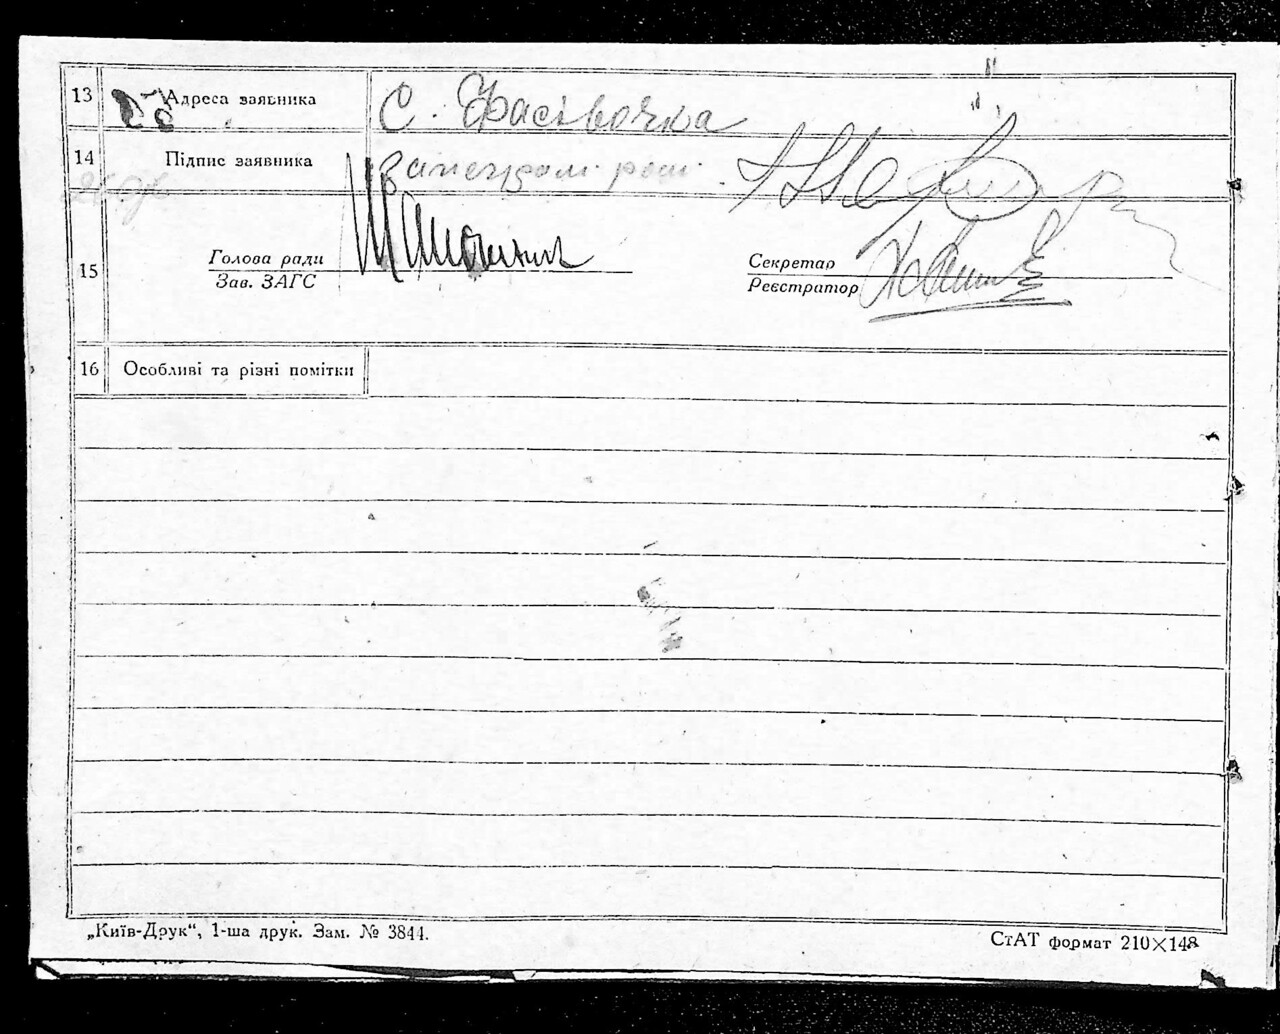 13 Адреса заявника С. Фастівочка
14 Підпис заявника
15
Голова ради
Зав. ЗАГС
Секретар
Реєстратор
16 Особливі та різні помітки
„Київ-Друк“, 1-ша друк. Зам. № 3844.
СтАТ формат 210×148